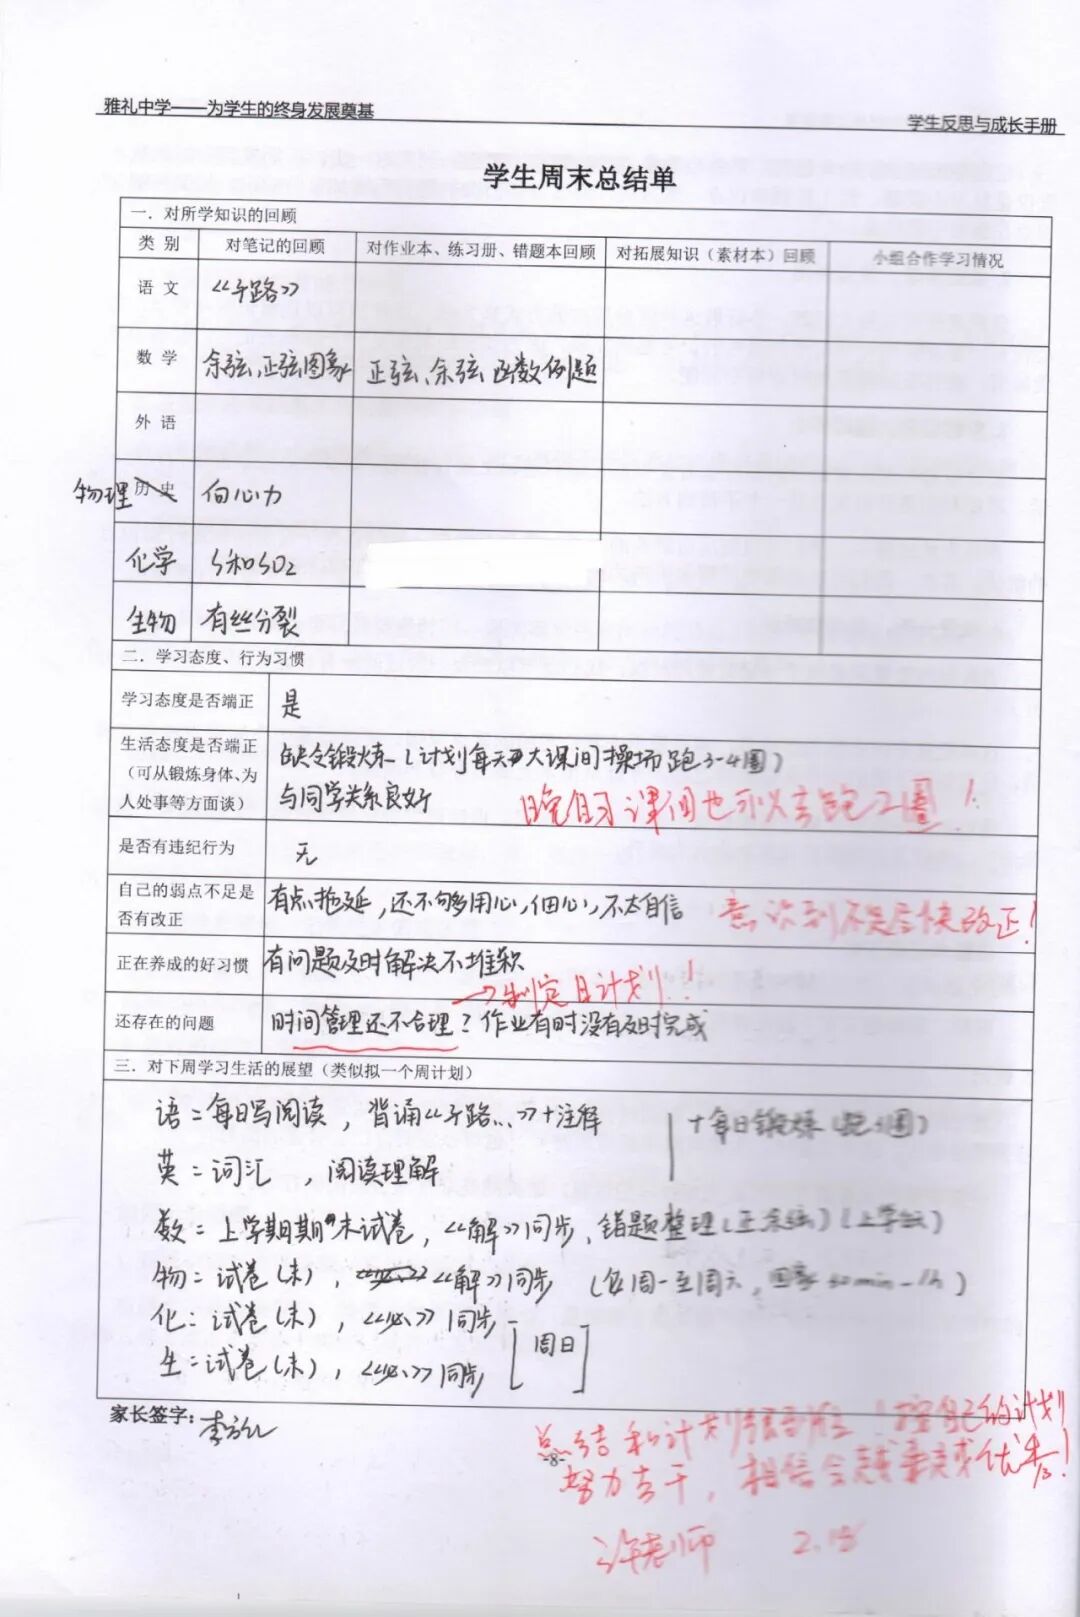 雅礼中学——为学生的终身发展奠基
学生反思与成长手册
学生周末总结单
一．对所学知识的回顾
类 别 对笔记的回顾 对作业本、练习册、错题本回顾 对拓展知识（素材本）回顾 小组合作学习情况
语 文 《子路》
数 学 余弦,正弦图象 正弦、余弦函数例题
外 语
物理 历 史 向心力
化学 S和SO2
生物 有丝分裂
二．学习态度、行为习惯
学习态度是否端正 是
生活态度是否端正
（可从锻炼身体、为
人处事等方面谈）
缺乏锻炼（计划每天大课间操场跑3-4圈）
与同学关系良好
晚自习课间也可以去跑2圈！
是否有违纪行为 无
自己的弱点不足是
否有改正
有点拖延，还不够用心,细心,不太自信
意识到不足尽快改正！
正在养成的好习惯 有问题及时解决不堆积
→制定日计划！！
还存在的问题 时间管理还不合理？作业有时没有及时完成
三．对下周学习生活的展望（类似拟一个周计划）
语：每日写阅读，背诵《子路…》+注解 +每日锻炼（跑 圈）
英：词汇，阅读理解
数：上学期期末试卷，《解》同步，错题整理（正余弦）（上学期）
物：试卷（未），《解》同步 （每周一至周六，回家 30min-1h）
化：试卷（未），《 》同步
生：试卷（未），《 》同步 [周日]
家长签字：李
总结和计划很到位！按自己的计划
-8-
努力去干，相信会越来越优秀！
许老师 2.